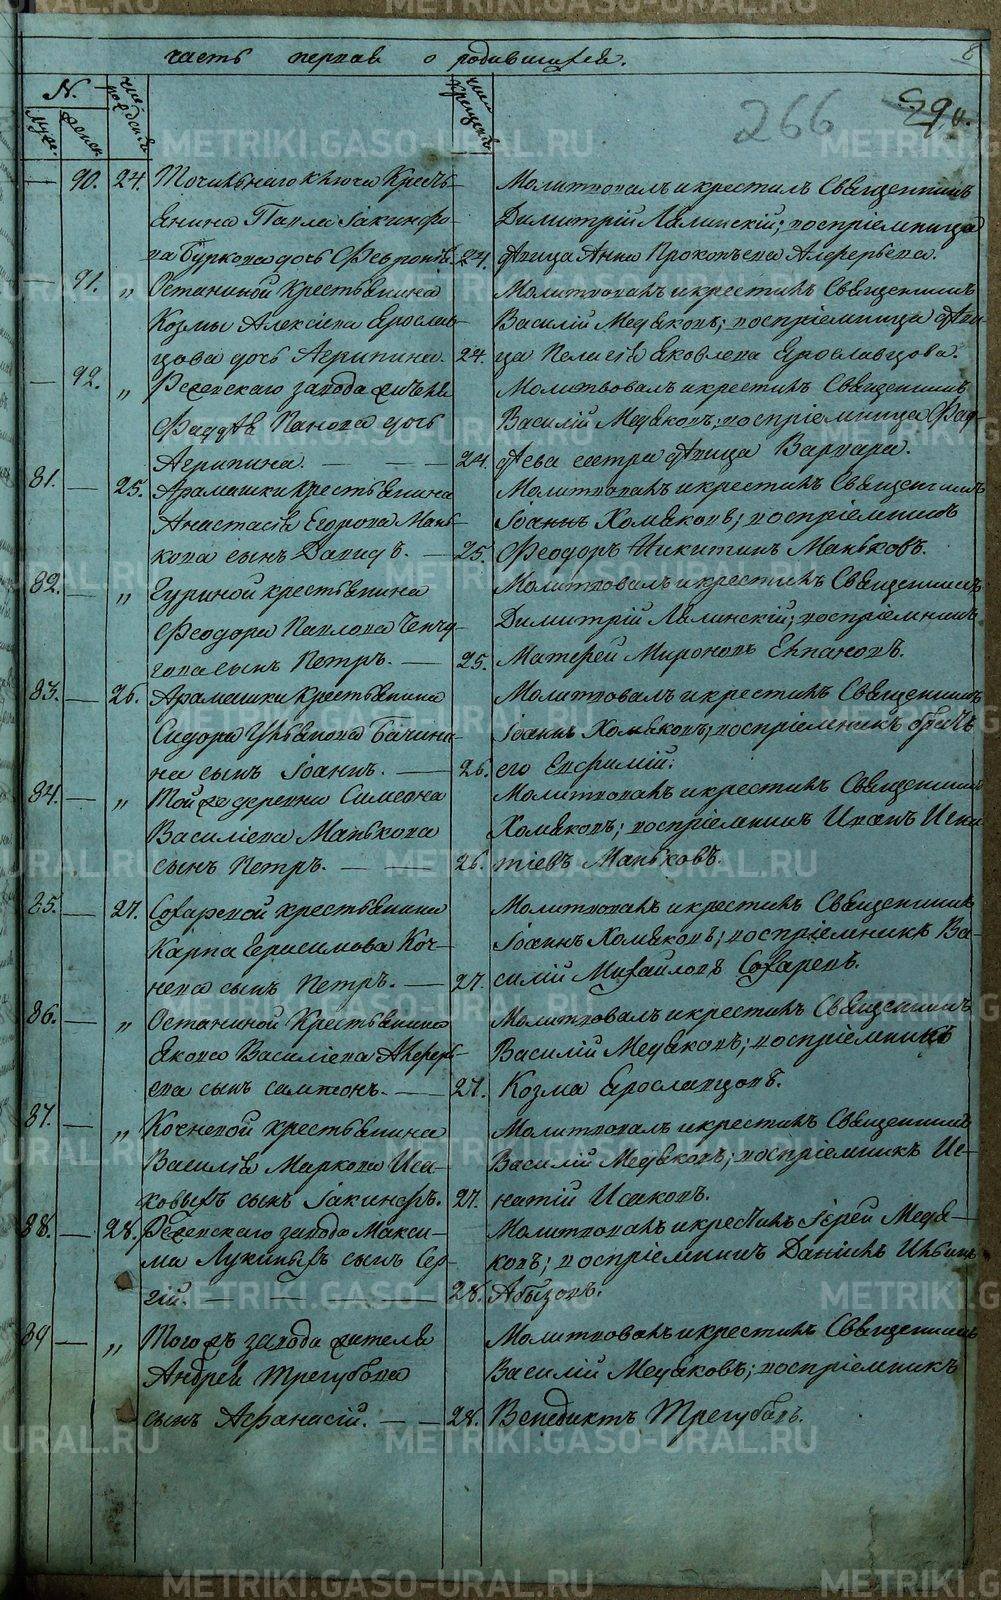 часть первая о родившихся.
8
N.
муж.
женск.
число рождения
число крещения
266
90. 24. Точильнаго ключа Кресть-
янина Павла Іакинфо-
ва Буркова дочь Февронія. 24.
Молитвовалъ и крестилъ Священникъ
Димитрій Ляпинскій; воспріемница
дѣвица Анна Прокопьева Алферьева.
91. „ Останиной Крестьянина
Козмы Алексіева Ярослав-
цова дочь Агрипина. 24.
Молитвовалъ и крестилъ Священникъ
Василій Медяковъ; воспріемница дѣви-
ца Пелагія Яковлева Ярославцова.
92. „ Режевскаго завода жителя
Фаддѣя Панова дочь
Агрипина. 24.
Молитвовалъ и крестилъ Священникъ
Василій Медяковъ; воспріемница Фад-
дѣева сестра дѣвица Варвара.
81. 25. Арамашки крестьянина
Анастасія Егорова Мань-
кова сынъ Давидъ. 25.
Молитвовалъ и крестилъ Священникъ
Іоаннъ Хомяковъ; воспріемникъ
Феодоръ Никитинъ Маньковъ.
82. „ Гуриной крестьянина
Феодора Павлова Ченчу-
гова сынъ Петръ. 25.
Молитвовалъ и крестилъ Священникъ
Димитрій Ляпинскій; воспріемникъ
Матфей Мироновъ
83. 26. Арамашки крестьянина
Сидора Ульянова Бачина-
на сынъ Іоаннъ. 26.
Молитвовалъ и крестилъ Священникъ
Іоаннъ Хомяковъ; воспріемникъ братъ
его Евфимій.
84. „ Той же деревни Симеона
Василіева Манькова
сынъ Петръ. 26.
Молитвовалъ и крестилъ Священникъ
Хомяковъ; воспріемникъ Иванъ Игна-
тіевъ Маньковъ.
85. 27. Сохаревой крестьянина
Карпа Герасимова Коч-
нева сынъ Петръ. 27.
Молитвовалъ и крестилъ Священникъ
Іоаннъ Хомяковъ; воспріемникъ Ва-
силій Михайловъ Сохаревъ.
86. „ Останиной Крестьянина
Якова Василіева Алферь-
ева сынъ Сампсонъ. 27.
Молитвовалъ и крестилъ Священникъ
Василій Медяковъ; воспріемникъ
Козма Ярославцовъ.
87. „ Кочневой крестьянина
Василія Маркова Иса-
ковыхъ сынъ Іакинфъ. 27.
Молитвовалъ и крестилъ Священникъ
Василій Медяковъ; воспріемникъ Иг-
натій Исаковъ.
88. 28. Режевскаго завода Макси-
ма Лукиныхъ сынъ Сер-
гій. 28.
Молитвовалъ и крестилъ Іерей Медя-
ковъ; воспріемникъ Даніилъ Ильинъ
Абызовъ.
89 „ Того жъ завода жителя
Андрея Трегубова
сынъ Афанасій. 28.
Молитвовалъ и крестилъ Священникъ
Василій Медяковъ; воспріемникъ
Венедиктъ Трегубовъ.
METRIKI.GASO-URAL.RU